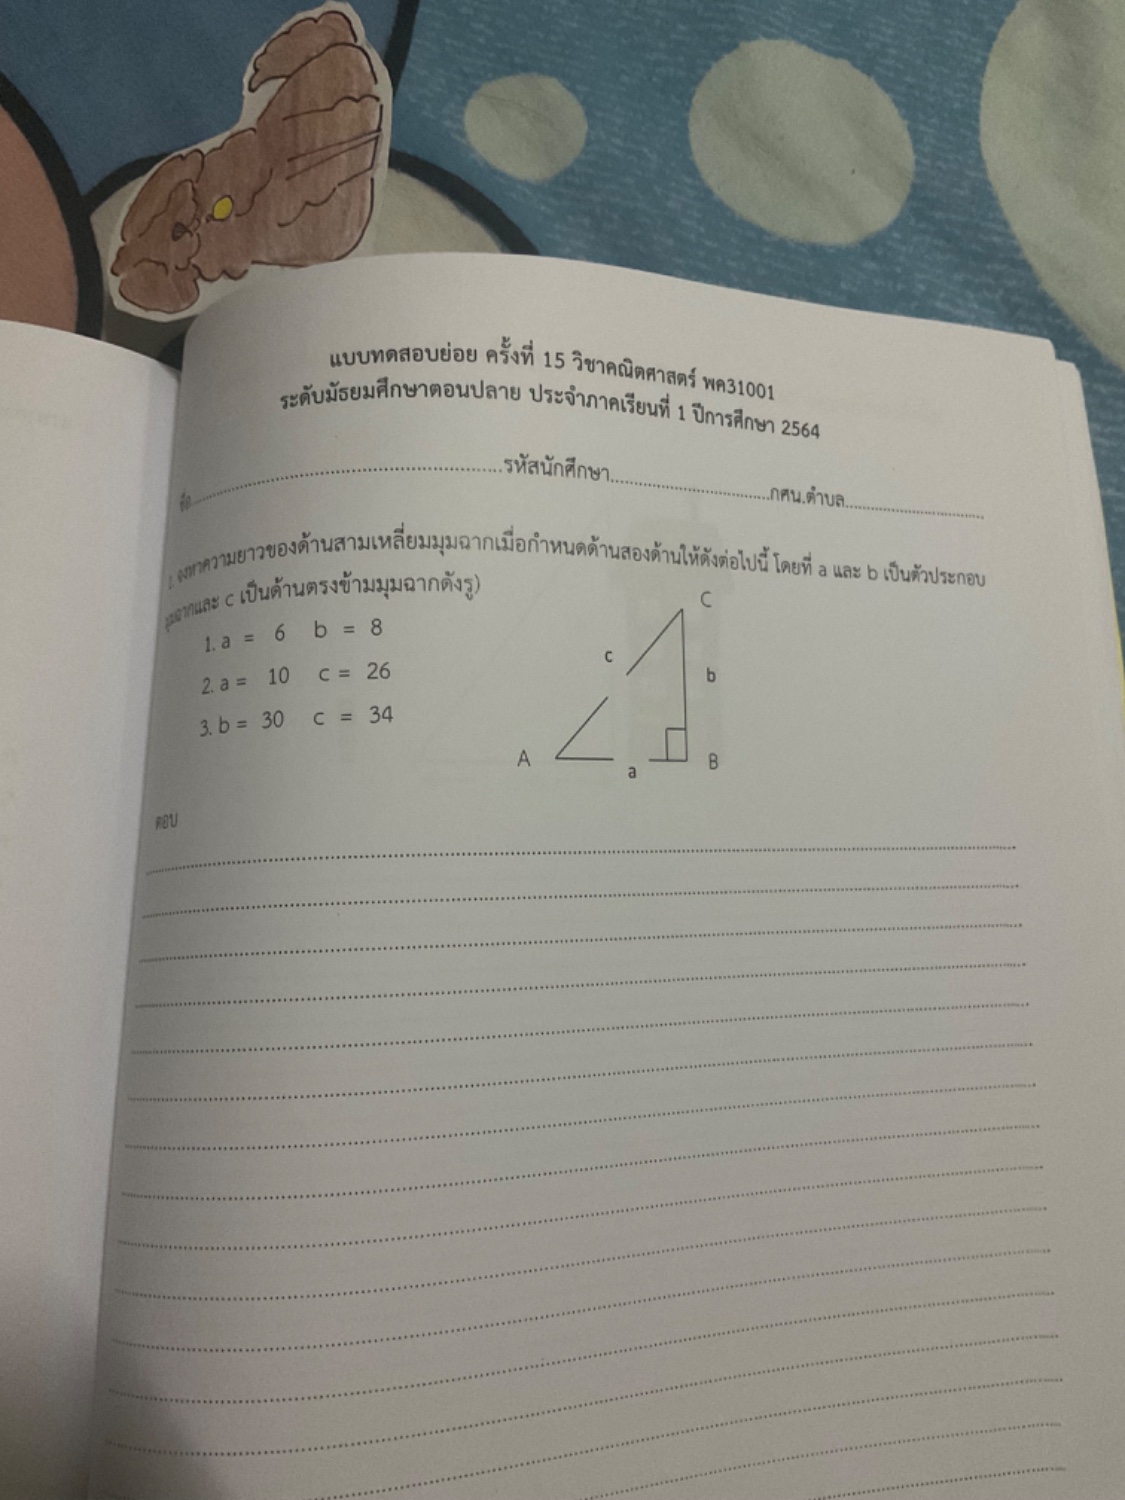 แบบทดสอบย่อย ครั้งที่ 15 วิชาคณิตศาสตร์ พค31001
ระดับมัธยมศึกษาตอนปลาย ประจำภาคเรียนที่ 1 ปีการศึกษา 2564
ชื่อ..........รหัสนักศึกษา..........กศน.ตำบล..........
1. จงหาความยาวของด้านสามเหลี่ยมมุมฉากเมื่อกำหนดด้านสองด้านให้ดังต่อไปนี้ โดยที่ a และ b เป็นตัวประกอบ
มุมฉากและ c เป็นด้านตรงข้ามมุมฉากดังรู)
1. a = 6 b = 8
2. a = 10 c = 26
3. b = 30 c = 34
C
c
b
A
a
B
ตอบ